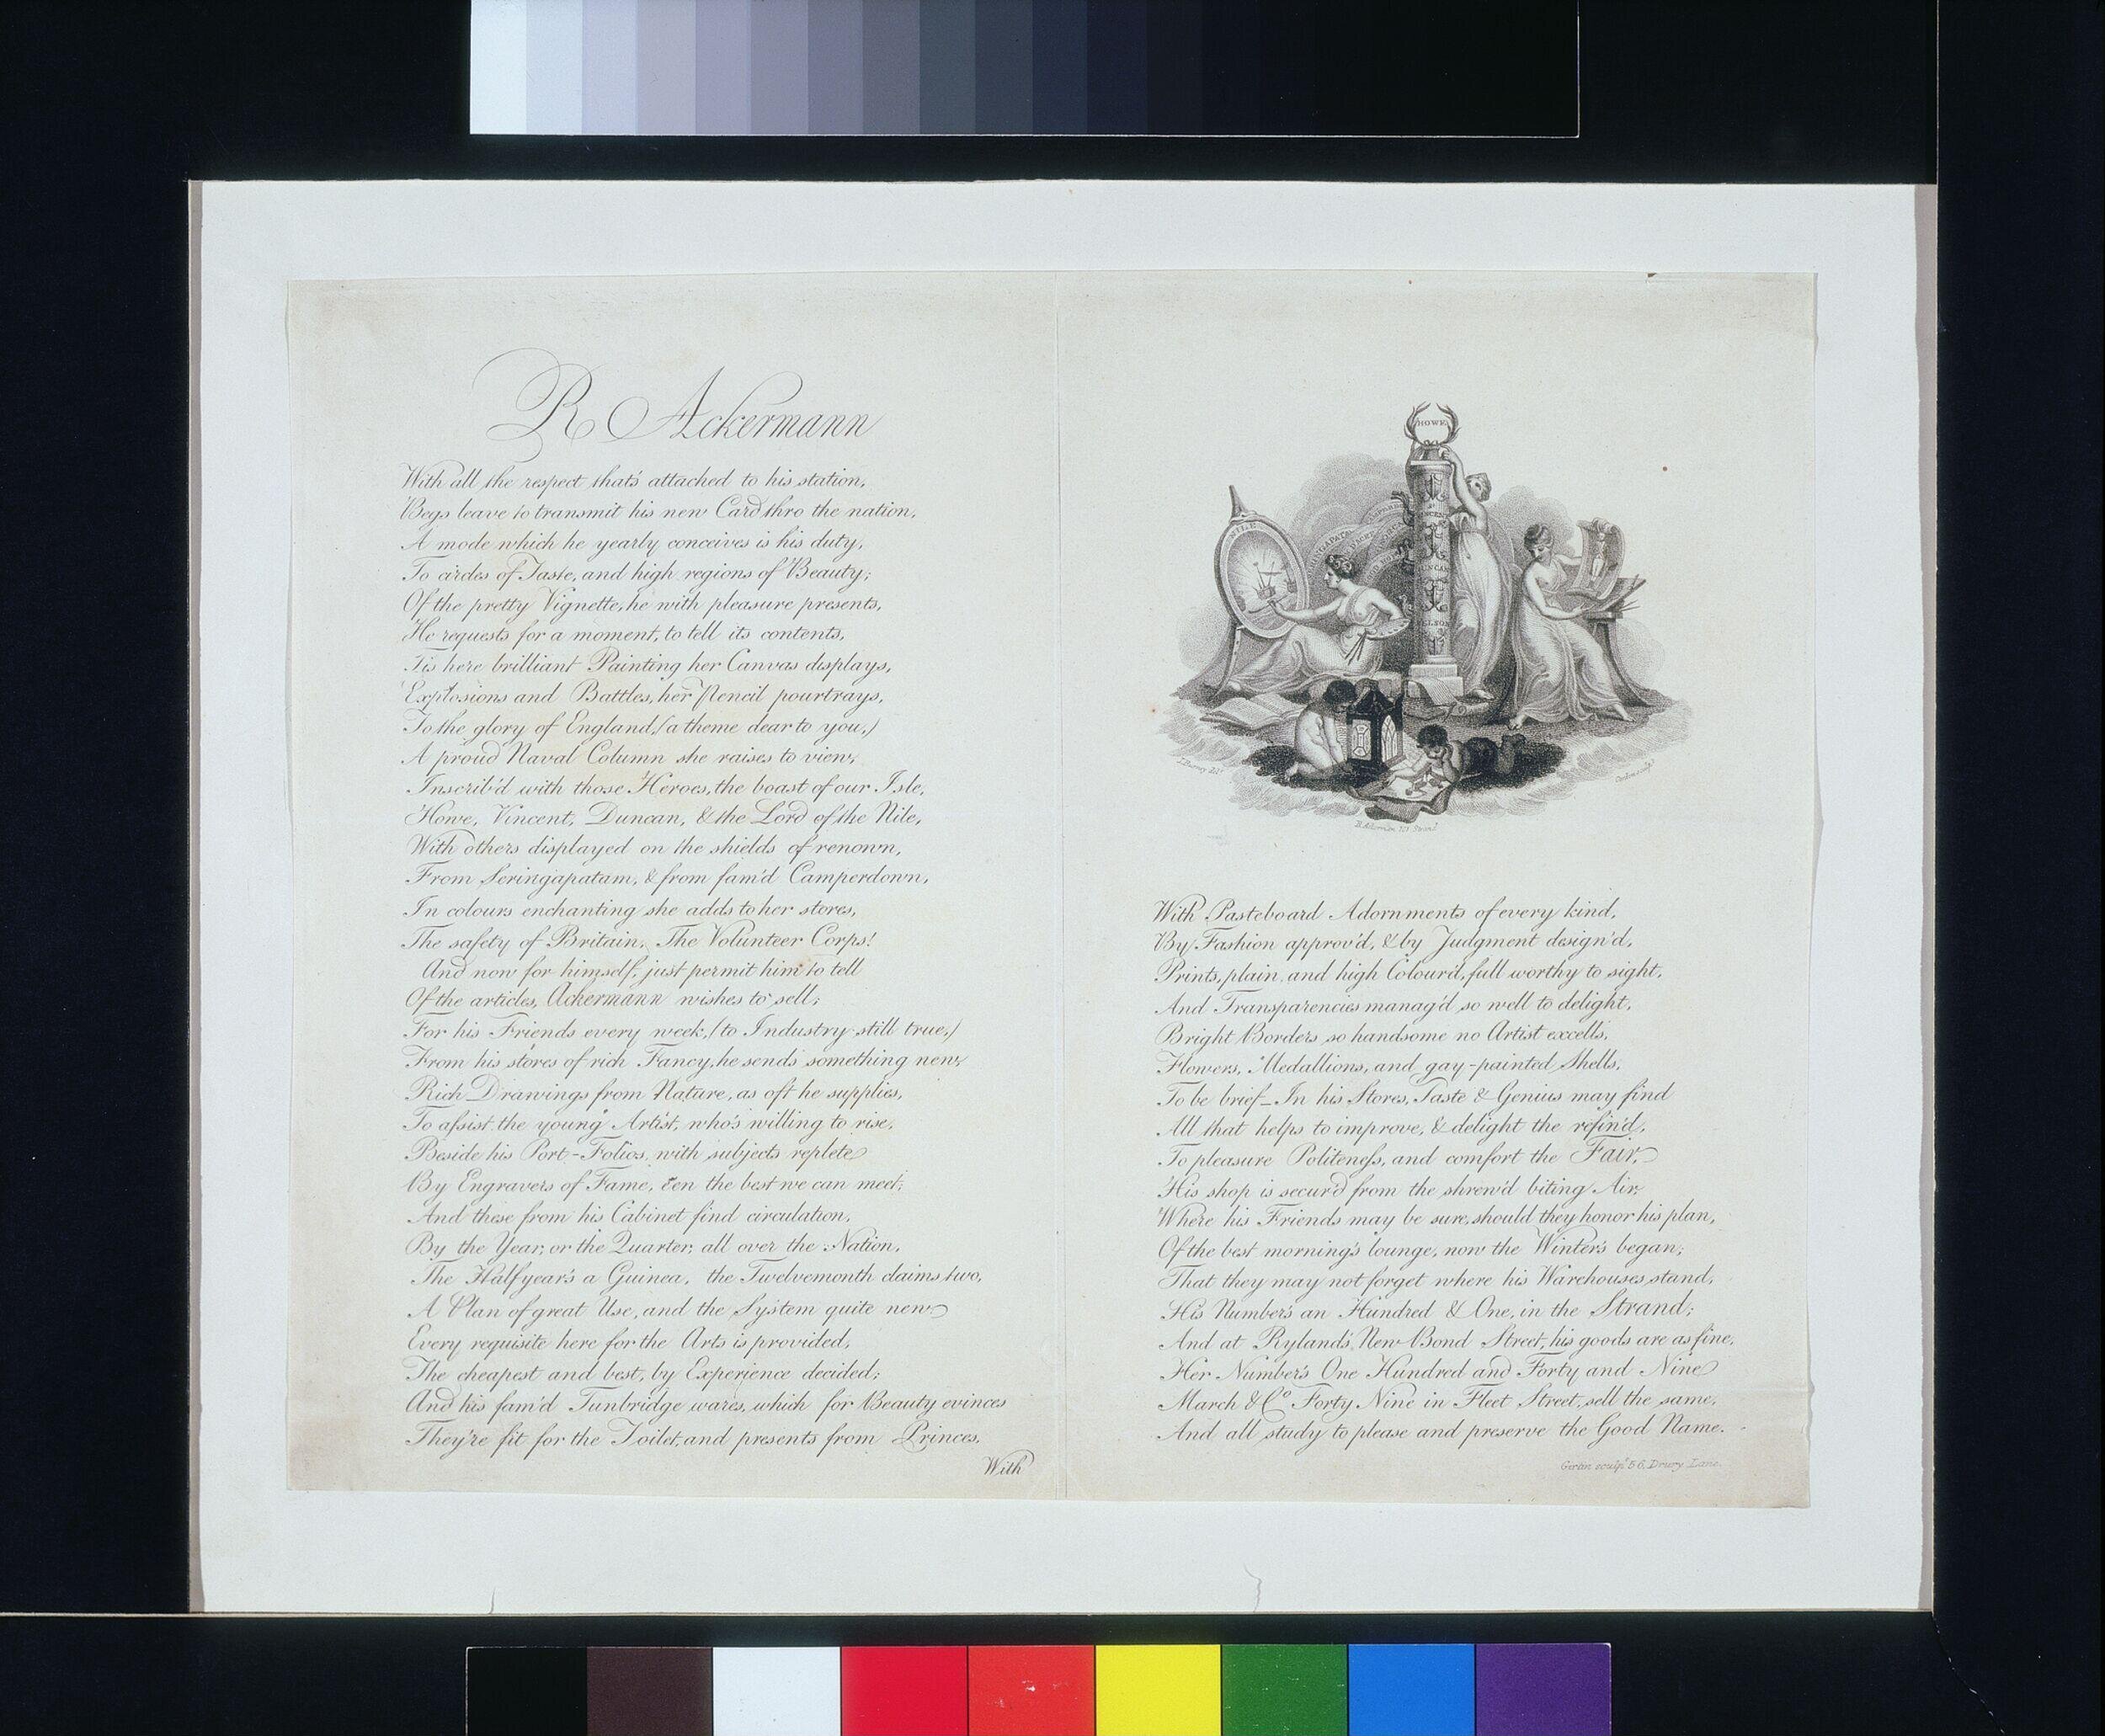 R Ackermann
With all the respect that's attached to his station,
Begs leave to transmit his new Card thro the nation,
A mode which he yearly conceives is his duty,
To circles of Taste, and high regions of Beauty;
Of the pretty Vignette, he with pleasure presents,
He requests for a moment, to tell its contents,
Tis here brilliant Painting her Canvas displays,
Explosions and Battles, her Pencil pourtrays,
To the glory of England, (a theme dear to you,)
A proud Naval Column she raises to view,
Inscrib'd with those Heroes, the boast of our Isle,
Howe, Vincent, Duncan, & the Lord of the Nile,
With others displayed on the shields of renown,
From Seringapatam, & from fam'd Camperdown,
In colours enchanting she adds to her stores,
The safety of Britain, The Volunteer Corps!
And now for himself, just permit him to tell
Of the articles, Ackermann wishes to sell;
For his Friends every week, (to Industry still true,)
From his stores of rich Fancy, he sends something new,
Rich Drawings from Nature, as oft he supplies,
To assist the young Artist, who's willing to rise,
Beside his Port-Folios, with subjects replete
By Engravers of Fame, e'en the best we can meet,
And these from his Cabinet find circulation,
By the Year, or the Quarter, all over the Nation,
The Halfyear's a Guinea, the Twelvemonth claims two,
A Plan of great Use, and the System quite new
Every requisite here for the Arts is provided,
The cheapest and best, by Experience decided;
And his fam'd Tunbridge wares, which for Beauty evinces
They're fit for the Toilet, and presents from Princes,
With
HOWE
NILE
VINCENT
DUNCAN
NELSON
R. Ackermann 101 Strand
With Pasteboard Adornments of every kind,
By Fashion approv'd, & by Judgment design'd,
Prints, plain, and high Colour'd, full worthy to sight,
And Transparencies manag'd so well to delight,
Bright Borders so handsome no Artist excells,
Flowers, Medallions, and gay-painted Shells,
To be brief_ In his Stores, Taste & Genius may find
All that helps to improve, & delight the refin'd,
To pleasure Politeness, and comfort the Fair,
His shop is secur'd from the shrew'd biting Air,
Where his Friends may be sure, should they honor his plan,
Of the best morning's lounge, now the Winter's began;
That they may not forget where his Warehouses stand,
His Number's an Hundred & One, in the Strand;
And at Ryland's New Bond Street, his goods are as fine,
Her Number's One Hundred and Forty and Nine
March & Co Forty Nine in Fleet Street, sell the same,
And all study to please and preserve the Good Name.
Girtin sculpt 56, Drury Lane.